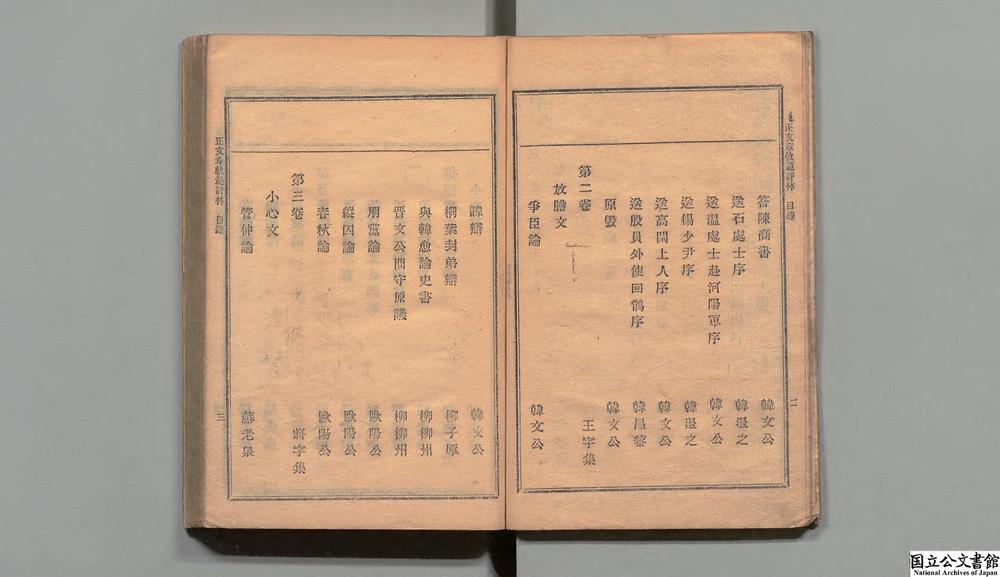 正文章軌範評林 目錄
二
答陳商書 韓文公
送石處士序 韓退之
送溫處士赴河陽軍序 韓文公
送楊少尹序 韓退之
送高閑上人序 韓文公
送殷員外使回鶻序 韓昌黎
原毀 韓文公
第二卷 王字集
放膽文
爭臣論 韓文公
諱辯 韓文公
桐葉封弟辯 柳子厚
與韓愈論史書 柳柳州
晉文公問守原議 柳柳州
朋黨論 歐陽公
縱囚論 歐陽公
春秋論 歐陽公
第三卷 將字集
小心文
管仲論 蘇老泉
正文章軌範評林 目錄
三
国立公文書館
National Archives of Japan